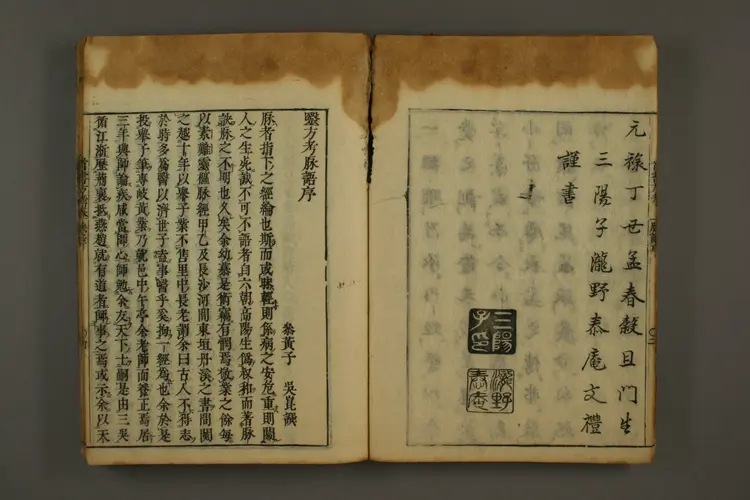 元祿丁丑孟春穀旦門生
三陽子瀧野泰庵文禮
謹書
三陽子印
野泰庵
醫方考脉語序
參黃子 吳崑譔
脉者指下之經綸也斯而或昧輕則係病之安危重則關
人之生死誠不可不語者自六朝高陽生僞叔和而著脉
訣脉之不明也久矣余幼慕是術竊有惘焉故業之餘每
以素難靈樞脉經甲乙及長沙河間東垣丹溪之書間閱
之越十年以舉子業不售里中長老謂余曰古人不得志
於時多爲醫以濟世子盍事醫乎奚拘一經爲也余於是
投舉子筆專岐黃業乃就邑中午亭余老師而養正焉居
三年與師論疾咸當師心師勉余友天下士嗣是由三吳
循江浙歷荊襄抵燕趙就有道者師事之焉或示余以天